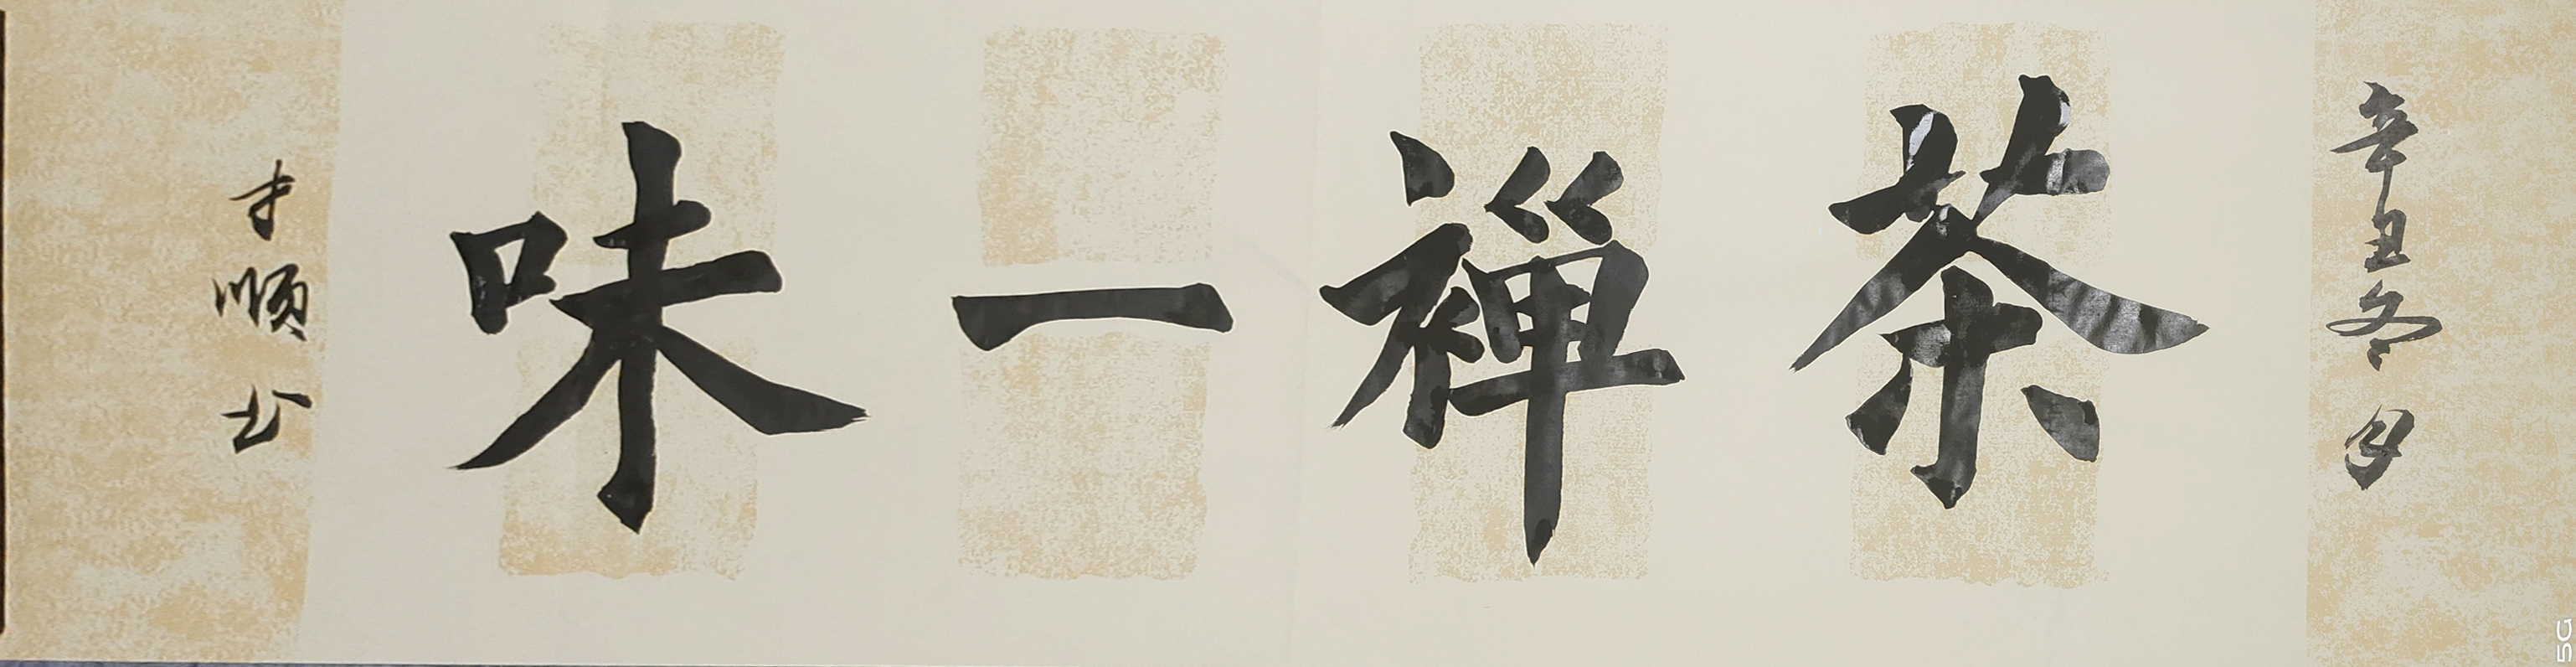 辛丑冬月
茶禅一味
才顺书
5G